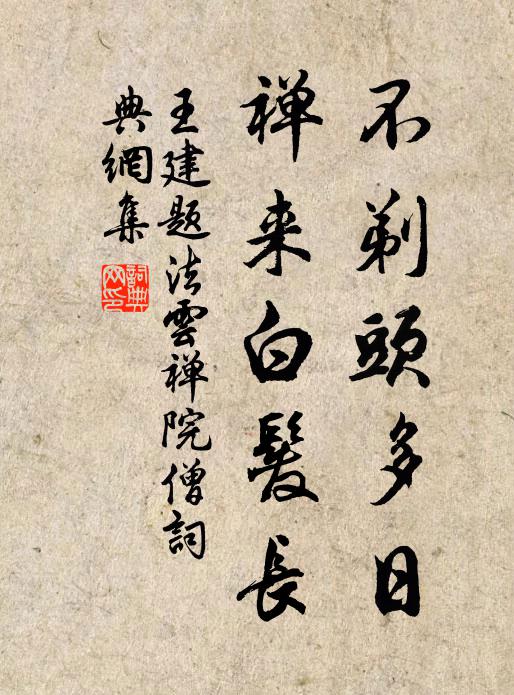 不剃頭多日
禅来白髮長
王建題法雲禅院僧詞
典網集
詞典
网印